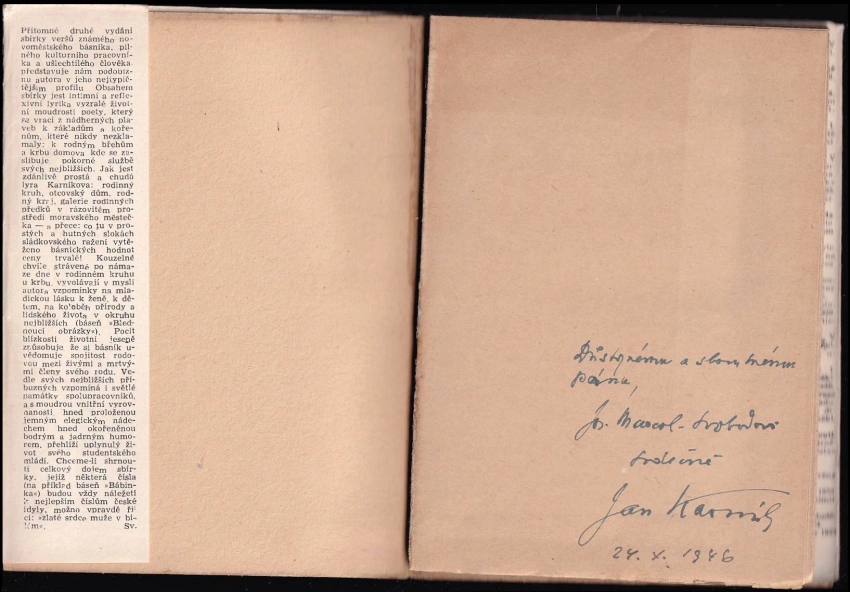 Přítomné druhé vydání
sbírky veršů známého no-
voměstského básníka, pil-
ného kulturního pracovní-
ka a ušlechtilého člověka
představuje nám podobiz-
nu autora v jeho nejtypič-
tějším profilu Obsahem
sbírky jest intimní a refle-
xivní lyrika vyzrálé život-
ní moudrosti poety, který
se vrací z nádherných pla-
veb k základům a koře-
nům, které nikdy nezkla-
maly: k rodným břehům
a krbu domova kde se za-
slibuje pokorné službě
svých nejbližších. Jak jest
zdánlivě prostá a chudá
lyra Karníkova: rodinný
kruh, otcovský dům, rod-
ný kraj, galerie rodinných
předků v rázovitém pro-
středí moravského městeč-
ka — a přece: co tu v pro-
stých a hutných slokách
sládkovského ražení vytě-
ženo básnických hodnot
ceny trvalé! Kouzelné
chvíle strávené po náma-
ze dne v rodinném kruhu
u krbu, vyvolávají v mysli
autora vzpomínky na mla-
dickou lásku k ženě, k dě-
tem, na koloběh přírody a
lidského života v okruhu
nejbližších (báseň »Bled-
noucí obrázky«). Pocit
blízkosti životní jeseně
způsobuje, že si básník u-
vědomuje spojitost rodo-
vou mezi živými a mrtvý-
mi členy svého rodu. Ve-
dle svých nejbližších pří-
buzných vzpomíná i světlé
památky spolupracovníků,
a s moudrou vnitřní vyrov-
naností hned proloženou
jemným elegickým náde-
chem hned okořeněnou
bodrým a jadrným humo-
rem, přehlíží uplynulý ži-
vot svého studentského
mládí. Chceme-li shrnou-
ti celkový dojem sbír-
ky, jejíž některá čísla
(na příklad báseň »Bábin-
ka«) budou vždy náležeti
k nejlepším číslům české
idyly, možno vpravdě ří-
ci: »zlaté srdce muže v bí-
lém«. Sv.
Důstojnému a slovutnému
pánu,
Jos. Marcol-Svobodovi
srdečně
Jan Karník
24. X. 1946